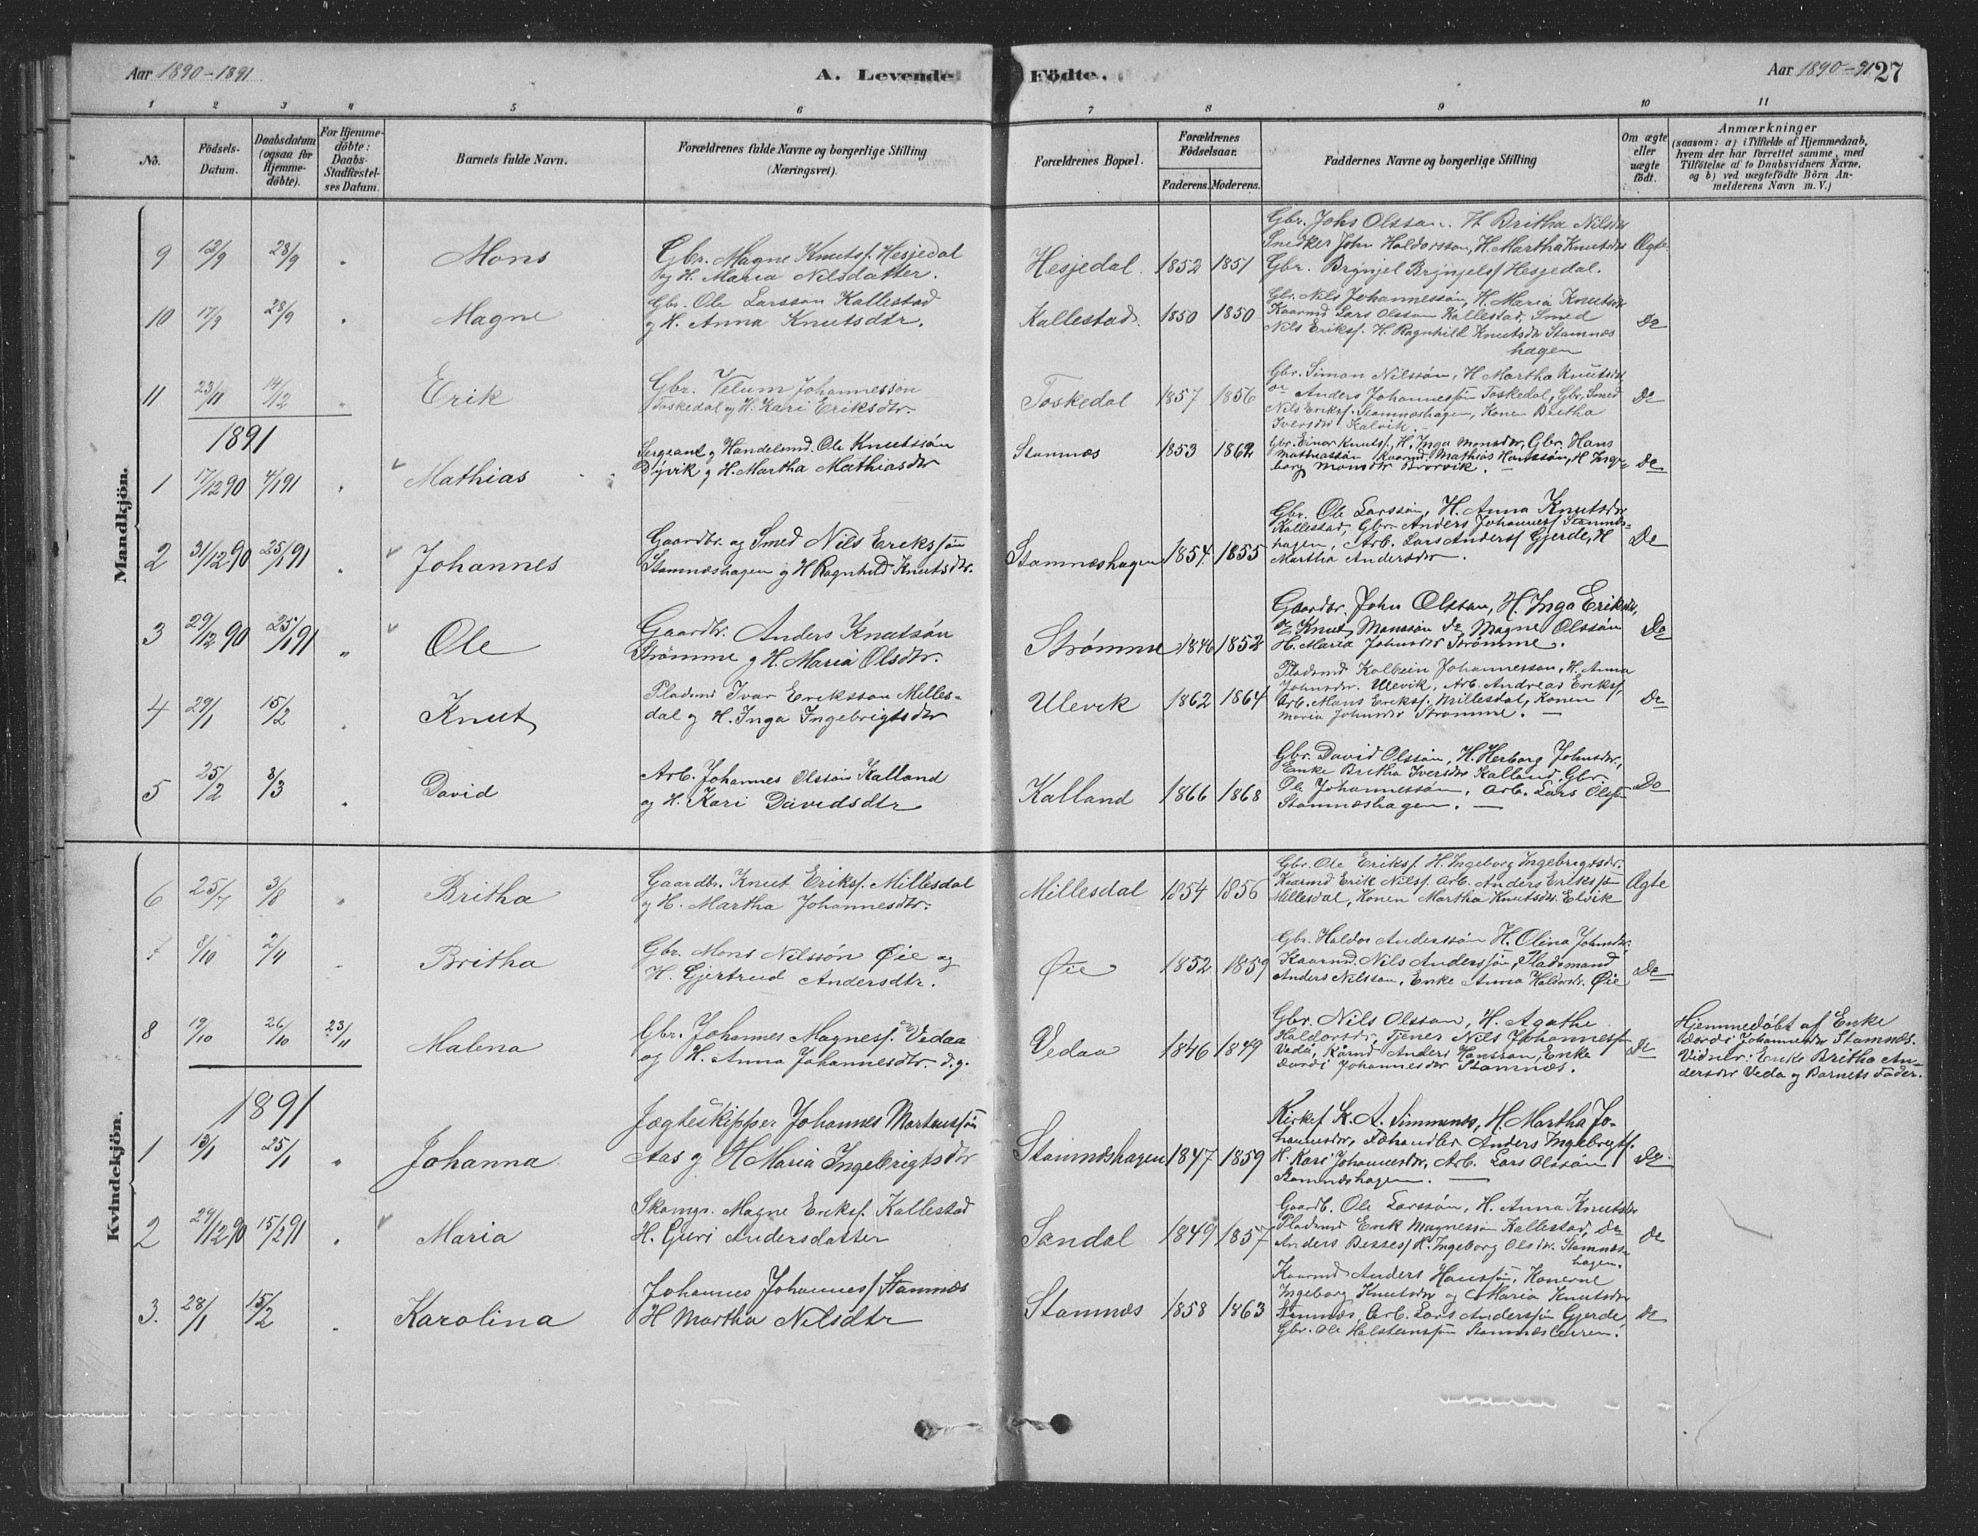 Aar 1890-1891
A. Levende Födte.
Aar 1890-91 27
1 2 3 4 5 6 7 8 9 10 11
No.
Födsels-
Datum.
Daabsdatum
(ogsaa for
Hjemme-
döbte).
For Hjemme-
döbte:
Daabs-
Stadfæstel-
ses Datum.
Barnets fulde Navn.
Forældrenes fulde Navne og borgerlige Stilling
(Næringsvei).
Forældrenes Bopæl.
Forældrenes
Födselsaar.
Faderens. Moderens.
Faddernes Navne og borgerlige Stilling
Om ægte
eller
uægte
födt.
Anmærkninger
(saasom: a) i Tilfælde af Hjemmedaab,
hvem der har forrettet samme, med
Tilföielse af to Daabsvidners Navne,
og b) ved uægtefödte Börn An-
melderens Navn m. V.)
Mandkjön.
9 12/9 28/9 " Mons
Gbr. Magne Knutsf. Hesjedal
og H. Maria Nilsdatter.
Hesjedal. 1852 1851
Gbr. Johs Olsson. H. Britha Nilsdr
Snedker John Haldorsson, H. Martha Knutsdr
Gbr. Brynjel Brynjelsf Hesjedal.
Ægte
10 17/9 28/9 " Magne
Gbr. Ole Larsson Kallestad
og H. Anna Knutsdtr.
Kallestad. 1850 1850
Gbr. Nils Johannessøn, H. Maria Knutsdr
Kaarmd Lars Olsson Kallestad, Smed
Nils Eriksf. H. Ragnhild Knutsdr Stamnæs
hagen
Do
11 23/11 14/12 " Erik
Gbr. Velum Johannesson
Toskedal og H. Kari Eriksdtr.
Toskedal 1857 1856
Gbr. Simon Nilssøn, H Martha Knutsdr
Anders Johannessøn Toskedal, Gbr. Smed
Nils Eriksf. Stamnæshagen, Konen Britha
Iversdr Kalvik.
Do
1891
1 17/12 90 4/1 91 " Mathias
Sergeant og Handelsmd. Ole Knutssøn
Dyvik og H. Martha Mathiasdr
Stamnæs 1853 1862
Gbr. Einar Knutsf., H. Inga Monsdr, Gbr. Hans
Mathiassøn Kaarmd. Mathias Hanssøn, H. Inge-
borg Monsdr
Do
2 31/12 90 25/1 91 " Johannes
Gaardbr. og Smed Nils Erikssøn
Stamnæshagen og H Ragnhild Knutsdtr.
Stamnæshagen 1854 1855
Gbr. Ole Larssøn, H. Anna Knutsdr
Kallestad, Gbr. Anders Johannesf Stamnæs-
hagen, Arb. Lars Andersf Gjerde, H
Martha Andersdr.
Do
3 29/12 90 25/1 91 " Ole
Gaardbr. Anders Knutsøn
Strømme og H. Maria Olsdtr.
Strømme 1846 1852
Gaardbr. John Olsson, H. Inga Eriksdr,
Knut Monssøn do, Magne Olssøn
H. Maria Johnsdr Strømme.
Do
4 29/1 15/2 " Knut
Pladsmd Ivar Eriksson Milles-
dal og H. Inga Ingebrigtsdr
Ulevik 1862 1864
Pladsmd Kolbein Johannesson, H. Anna
Johnsdr. Ulevik, Arb. Andreas Eriksf.
Arb. Mons Eriksf. Millesdal, Konen
Maria Johnsdr Strømme.
Do
5 25/2 8/3 " David
Arb. Johannes Olssøn Kalland
og H. Kari Davidsdtr
Kalland 1866 1868
Gbr. David Olssøn, H. Herborg Johnsdr,
Enke Britha Iversdr Kalland, Gbr.
Ole Johannessøn, Arb. Lars Olsf
Stamnæshagen.
Do
Kvindekjön.
6 25/7 3/8 " Britha
Gaardbr. Knut Eriksf. Millesdal
og H. Martha Johannesdtr.
Millesdal 1854 1856
Gbr. Ole Eriksf. H. Ingeborg Ingebrigtsdr.
Kaarmd Erik Nilsf. Arb. Anders Erikssøn
Millesdal, Konen Martha Knutsdr. Elvik
Ægte
7 8/10 2/11 " Britha
Gbr. Mons Nilssøn Øie og
H. Gjertrud Andersdtr.
Øie 1852 1859
Gbr. Haldor Anderssøn H. Olina Johnsdr.
Kaarmd. Nils Anderssøn, Pladsmand
Anders Nilsson, Enke Anna Haldorsdr. Øie
Do
8 19/10 26/10 23/11 Malena
Gbr. Johannes Magnesf. Vedaa
og H. Anna Johannesdtr. d. g.
Vedaa 1846 1849
Gbr. Nils Olsson, H. Agathe
Haldorsdr, Tjener Nils Johannesf
Veda, Kårmd Anders Hansson, Enke
Dordi Johannesdr Stamnæs.
Do
Hjemmedøbt af Enke
Dordi Johannesdr Stamnæs.
Vidner: Enke Britha An-
dersdr Veda og Barnets Fader.
1891
1 13/1 25/1 " Johanna
Jægteskipper Johannes Martenssøn
Aas og H Maria Ingebrigtsdr
Stamnæshagen 1847 1859
Kirkes. K. A. Simmenes, H. Martha Jo-
hannesdr, Anders Ingebrigtsf.
H. Kari Johannesdr, Arb. Lars Olssøn
Stamnæshagen.
Do.
2 29/12 90 15/2 91 " Maria
Skomgr. Magne Eriksf. Kallestad
H. Guri Andersdatter
Sandal 1849 1857
Gaardb. Ole Larssøn, H. Anna Knutsdr
Pladsmd Erik Magnessøn Kallestad, Do
Anders H. Ingeborg Olsdr. Stamnæs-
hagen.
Do
3. 28/1 15/2 " Karolina
Johannes Johannesf. Stamnæs
H Martha Nilsdtr
Stamnæs 1858 1863
Kaarmd Anders Hanssøn, Konerne
Ingeborg Knutsdr og Maria Knutsdr
Stamnæs, Arb. Lars Anderssøn Gjerde,
Gbr. Ole Halstenssøn
Do